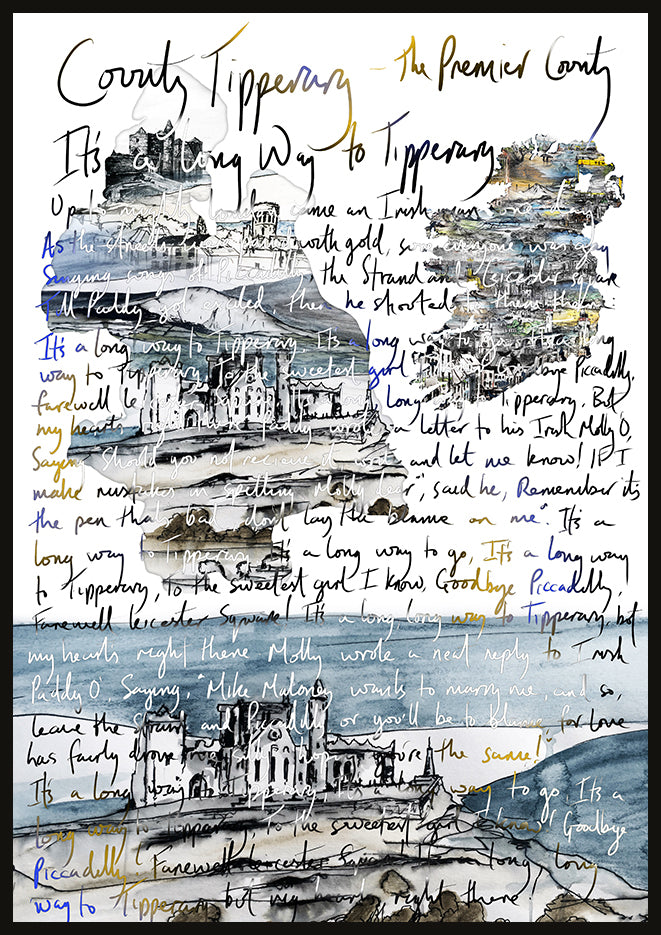 County Tipperary - The Premier County
It's a long Way to Tipperary
Up to came an Irish man one day
As the streets with gold, so everyone was gay
Singing songs of Piccadilly, the Strand and Leicester square
Till Paddy got excited, then he shouted to them there:
It's a long way to Tipperary, It's a long way to go, It's a long
way to Tipperary, to the sweetest girl Goodbye Piccadilly,
farewell Le long to Tipperary, But
my hearts Paddy wrote a letter to his Irish Molly O,
Saying Should you not recieve it and let me know! If I
make mistakes in spelling Molly dear", said he, Remember it's
the pen that's bad, don't lay the blame on me". It's a
long way to Tipperary, It's a long way to go, It's a long way
to Tipperary, to the sweetest girl I know, Goodbye Piccadilly,
Farewell Leicester Square! It's a long, long way to Tipperary, but
my hearts right there Molly wrote a neat reply to Irish
Paddy O', Saying, "Mike Maloney wants to marry me, and so,
leave the Strand and Piccadilly or you'll be to blame for love
has fairly drove the same!"
It's a long way to Tipperary, It's a long way to go. It's a
long way to Tipperary, To the sweetest girl "Goodbye
Piccadilly! Farewell Leicester Square! long, long
way to Tipperary but my hearts right there!